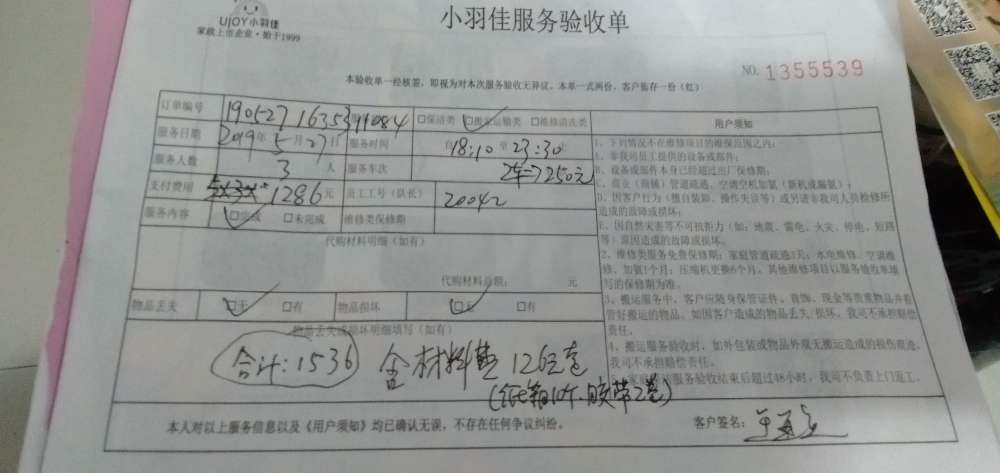 UJOY小羽佳
家政上市企业·始于1999
小羽佳服务验收单
NO. 1355539
本验收单一经核签，即视为对本次服务验收无异议。本单一式两份，客户临存一份（红）
订单编号 190527 16353 11084 □保洁类 □搬家运输类 □维修清洗类
服务日期 2019年5月27日 服务时间 自18:10至23:30
服务人数 3人 服务车次 2车=>250元
支付费用 1286元 员工工号（队长） 20042
服务内容 □完成 □未完成 维修类保修期
代购材料明细（如有）
代购材料总额： 元
物品丢失 □无 □有 物品损坏 □无 □有
物品丢失或损坏明细填写（如有）
合计:1536 含材料费126元
(纸箱10个、胶带2卷)
用户须知
1、下列情况不在维修项目的维保范围之内：
A、非我司员工提供的设备或部件；
B、设备或部件本身已经超过出厂保修期；
C、商业（商铺）管道疏通、空调空机加氨（新机或漏氨）；
D、因客户行为（擅自装卸、操作失误等）或另请非我司人员检修所
造成的故障或损坏；
E、因自然灾害等不可抗拒力（如：地震、雷电、火灾、停电、短路
等）原因造成的故障或损坏。
2、维修类服务免费保修期：家庭管道疏通3天；水电维修、空调维
修、加氨1个月；压缩机更换6个月。其他维修项目以服务验收单填
写的保修期为准。
3、搬运服务中，客户应随身保管证件、首饰、现金等贵重物品并看
管好搬运的物品。如因客户造成的物品丢失/损坏，我司不承担赔偿
责任。
4、搬运服务验收时，如外包装或物品外观无搬运造成的损伤痕迹，
我司不承担赔偿责任。
5、家庭保洁服务验收结束后超过48小时，我司不负责上门返工。
本人对以上服务信息以及《用户须知》均已确认无误，不存在任何争议纠纷。 客户签名：